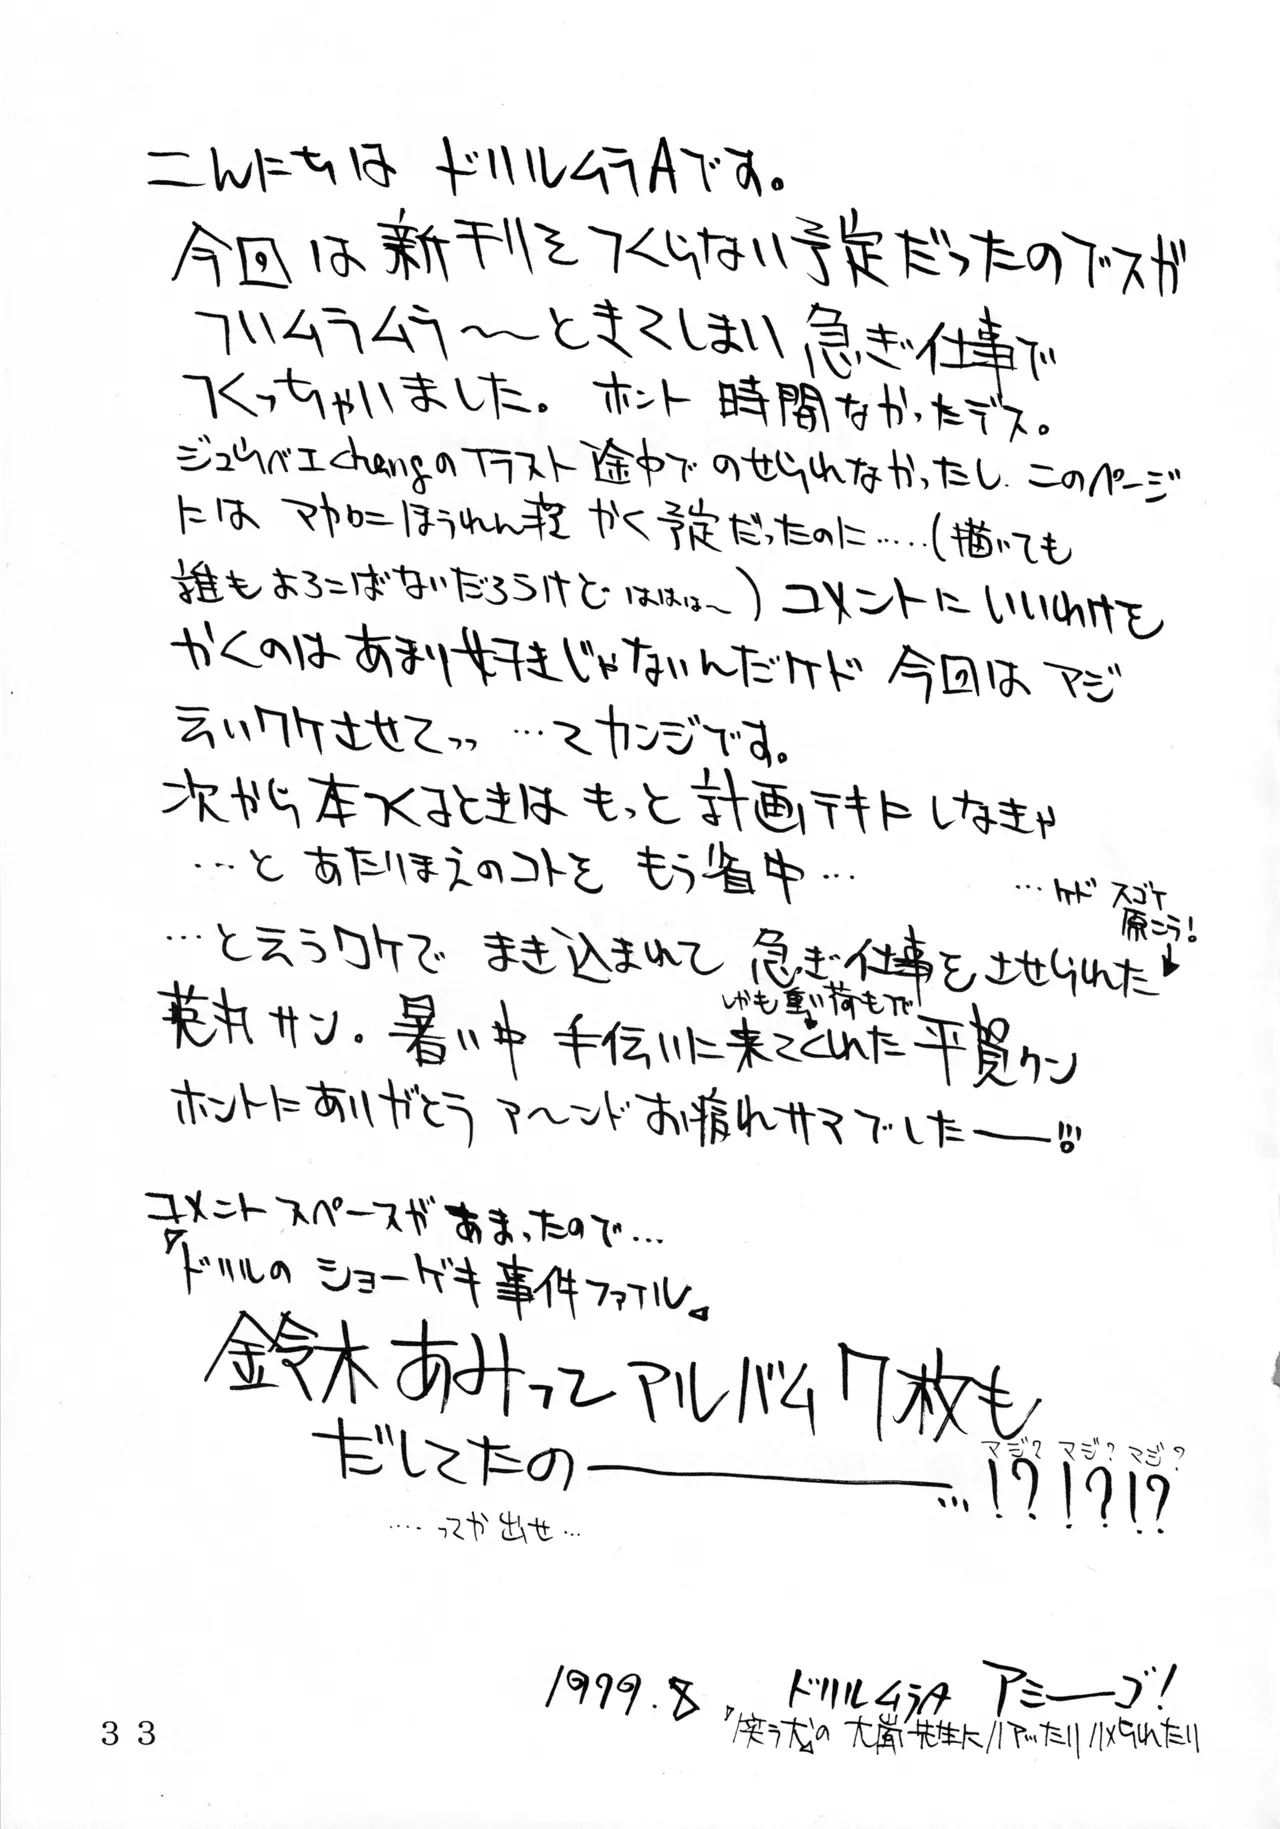 こんにちは ドリルムラAです。
今回は新刊をつくらない予定だったのデスガ
ついムラムラ〜〜ときてしまい 急ぎ仕事で
つくっちゃいました。 ホント 時間なかったデス。
ジュウベエchangのイラスト 途中で のせられなかったし このページ
には マカロニほうれん荘 かく予定だったのに……(描いても
誰もよろこばないだろうけど はははは〜) コメントにいいわけを
かくのはあまり好きじゃないんだケド 今回は マジ
云いワケさせてッッ …てカンジです。
次から本つくるときは もっと 計画テキに しなきゃ
…と あたりまえのコトを もう省中…
…ケド スゴイ
原こう!
…と云うワケで まき込まれて 急ぎ仕事をさせられた
しかも重い荷もつで
英丸サン。暑い中 手伝いに来てくれた 平賀クン
ホントにありがとう ア〜ンド お疲れサマでしたー!!
コメントスペースが あまったので…
『ドリルの ショーゲキ事件ファイル』
鈴木あみって アルバム7枚も
だしてたのー…!?!?!?
マジ? マジ? マジ?
……ってか 出せ…
1999.8 ドリルムラA アミーゴ!
『笑う犬』の 大嵐先生に ハマッたり ハメられたり
33